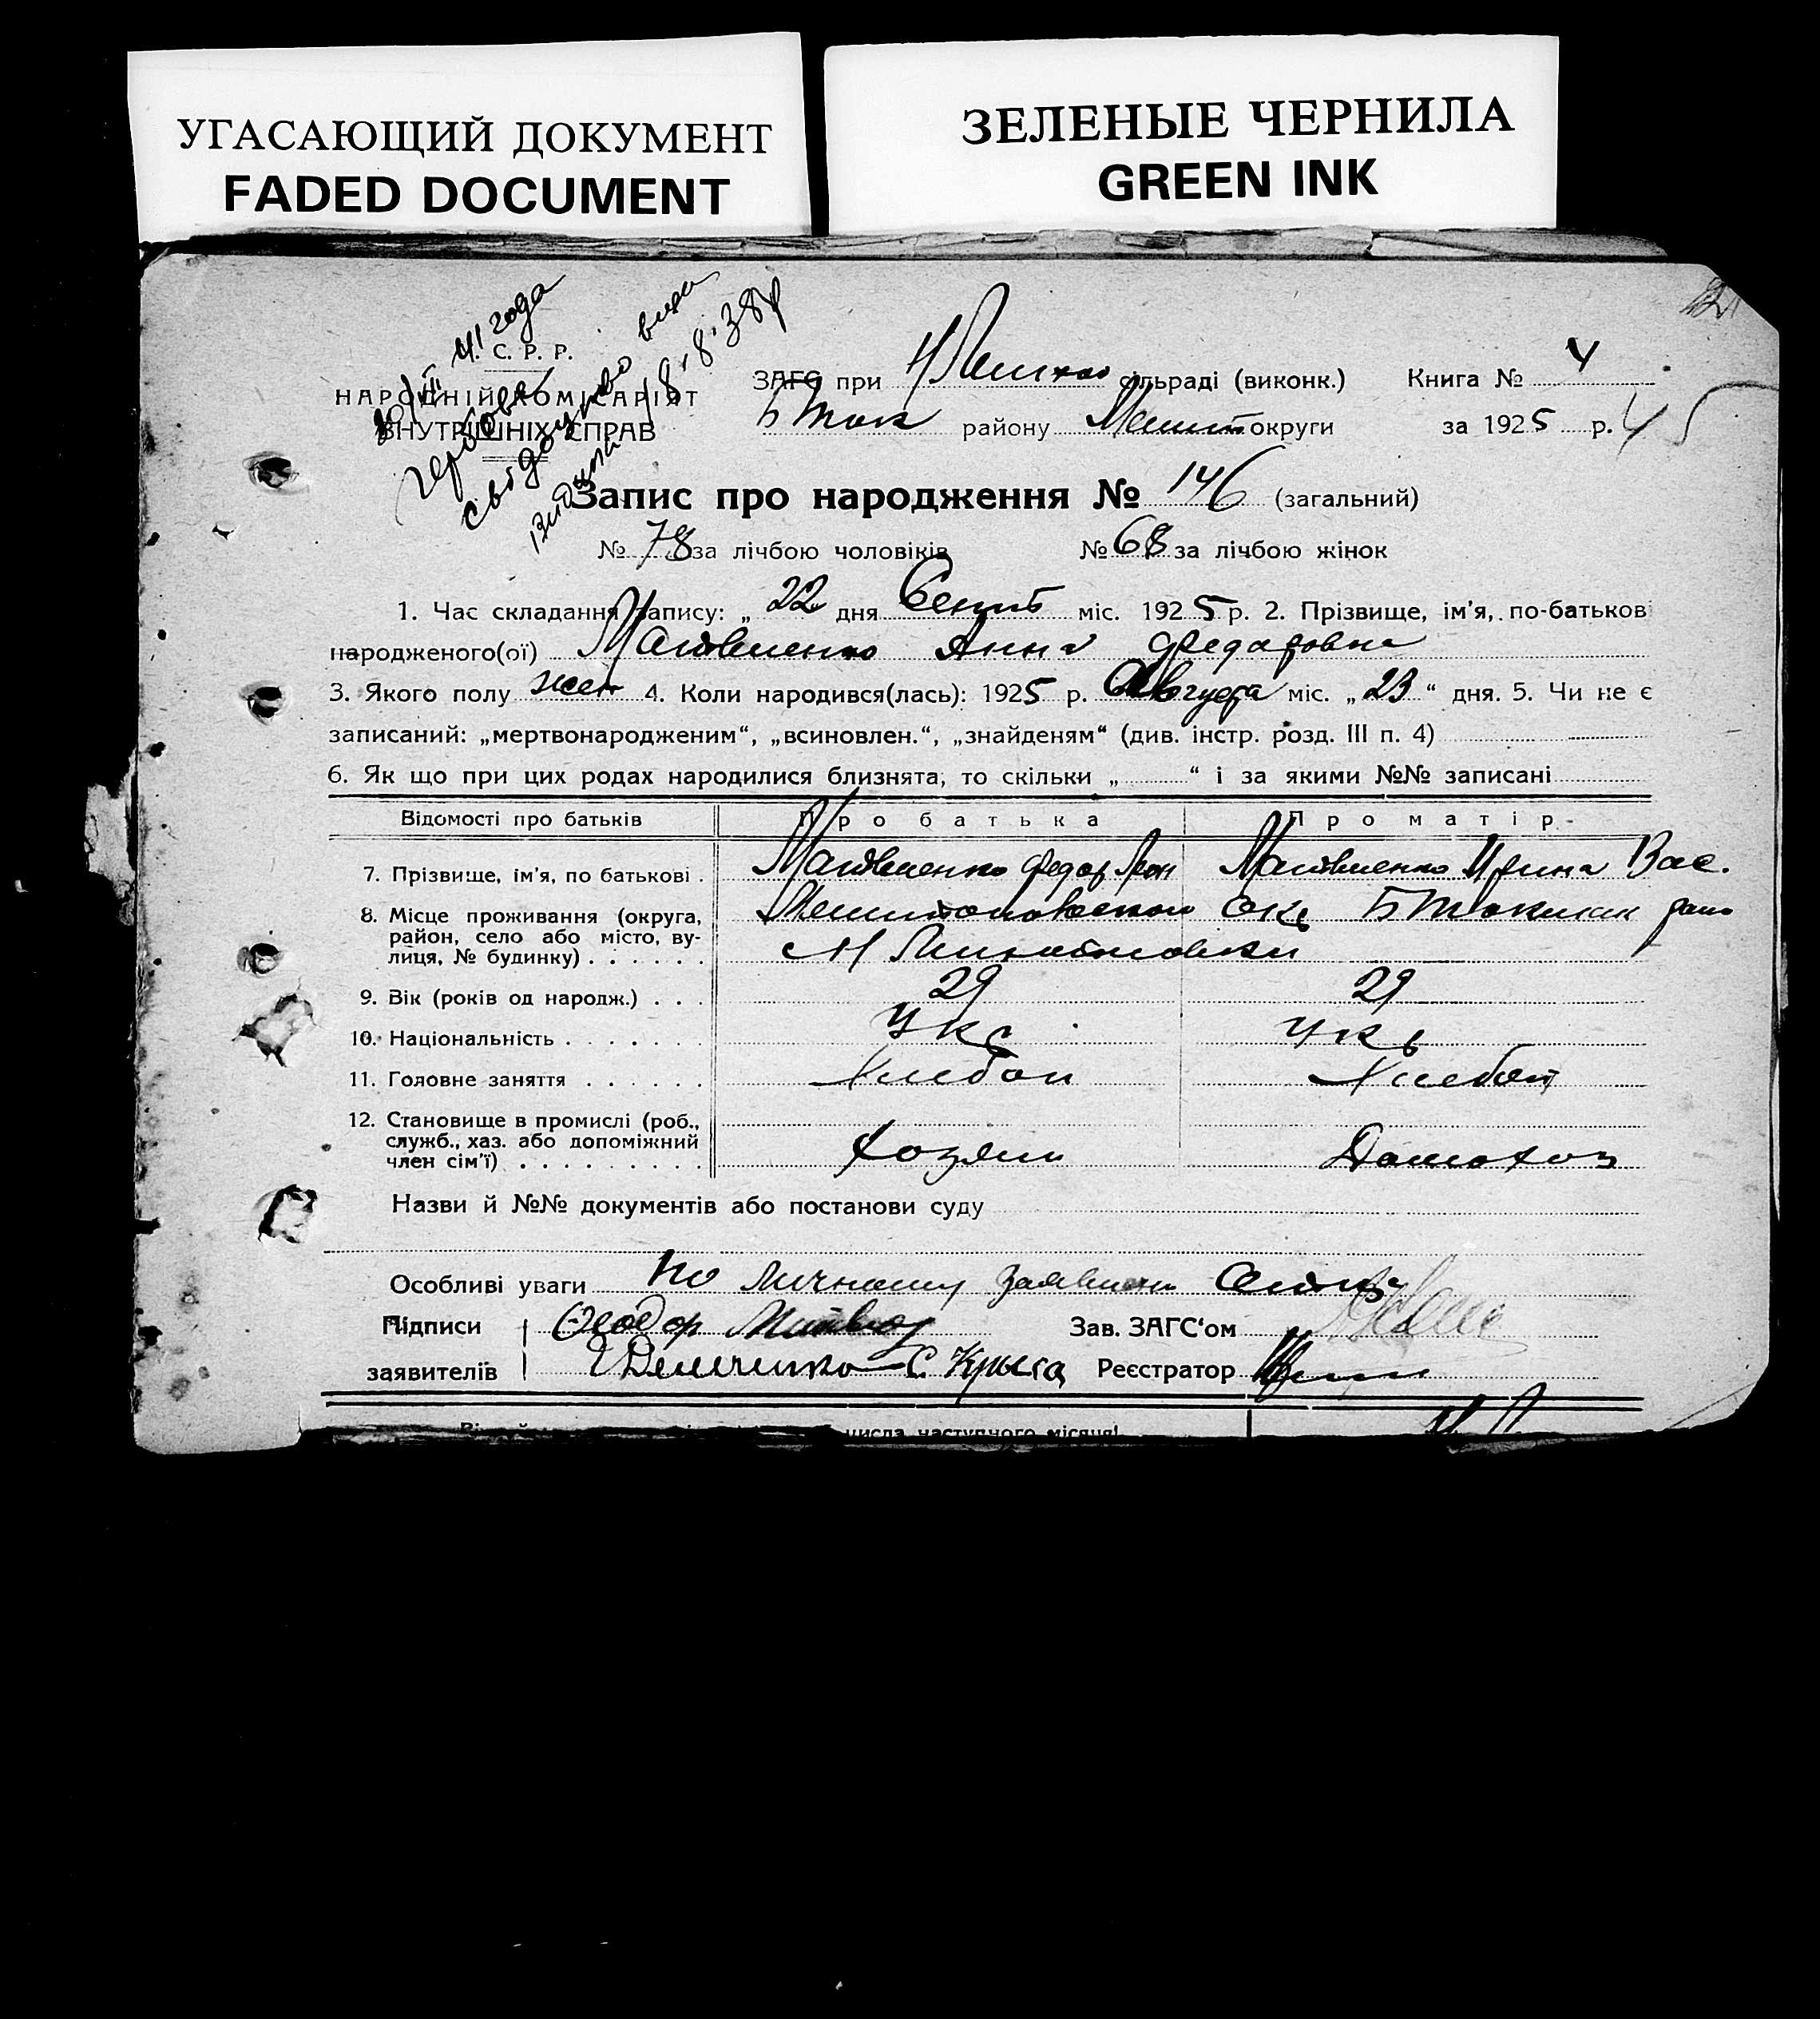 УГАСАЮЩИЙ ДОКУМЕНТ
FADED DOCUMENT
ЗЕЛЕНЫЕ ЧЕРНИЛА
GREEN INK
41 года
С. Р. Р.
НАРОДНІЙ КОМІСАРІЯТ
ВНУТРІШНІХ СПРАВ
свідоцтво
18-8-38р
ЗАГС при сільраді (виконк.) Книга № 4
Б Ток району Мелит округи за 1925 р. 45
Запис про народження № 146 (загальний)
№ 78 за лічбою чоловіків № 68 за лічбою жінок
1. Час складання запису: „ 22 дня Сент міс. 1925 р. 2. Прізвище, ім'я, по-батькові
народженого(ої) Матвиенко Анна Федоровна
3. Якого полу жен 4. Коли народився(лась): 1925 р. Августа міс. „ 23 “ дня. 5. Чи не є
записаний: „мертвонародженим“, „всиновлен.“, „знайденям“ (див. інстр. розд. III п. 4)
6. Як що при цих родах народилися близнята, то скільки „ “ і за якими №№ записані
Відомості про батьків Про батька Про матір
7. Прізвище, ім'я, по батькові . Матвиенко Федор Матвиенко Ирина Вас.
8. Місце проживання (округа, Окр
район, село або місто, ву-
лиця, № будинку) . . . . . .
9. Вік (років од народж.) . . . 29 29
10. Національність . . . . . . . Укр Укр
11. Головне заняття . . . . . . Хлебоп Хлебоп
12. Становище в промислі (роб.,
служб., хаз. або допоміжний
член сім'ї) . . . . . . . . . Хозяин Домохоз
Назви й №№ документів або постанови суду
Особливі уваги по личному
Підписи Феодор Зав. ЗАГС‘ом
заявителів С. Крыса Реєстратор
числа наступного місяця!